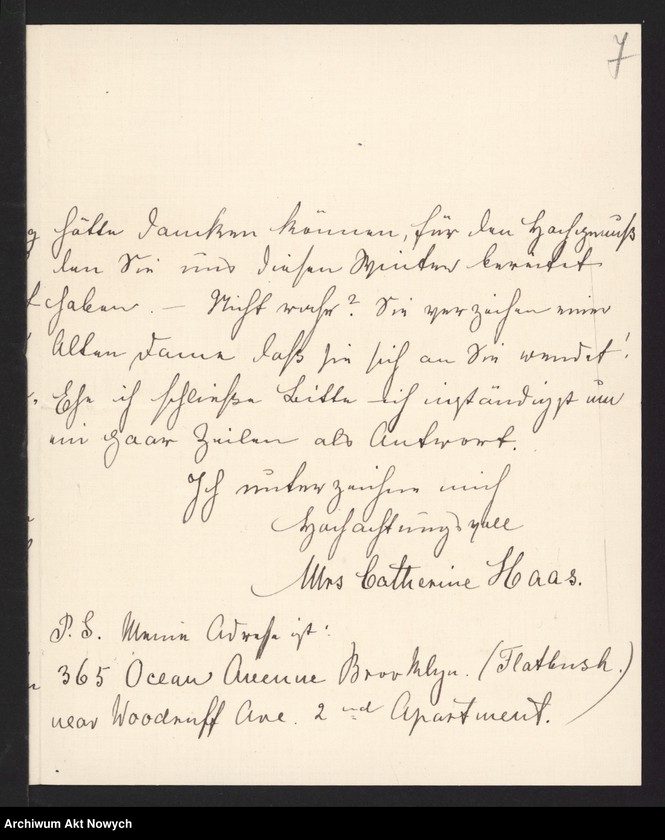 7
hätte danken können, für den Hochgenuß
den Sie uns diesen Winter bereitet
haben. — Nicht wahr? Sie verzeihen einer
Alten Dame daß sie sich an Sie wendet!
Ehe ich schließe bitte ich inständigst um
ein paar Zeilen als Antwort.
Ich unterzeichne mich
Hochachtungsvoll
Mrs Catherine Haas.
P.S. Meine Adresse ist:
365 Ocean Avenue Brooklyn. (Flatbush.)
near Woodruff Ave. 2nd Apartment.
Archiwum Akt Nowych